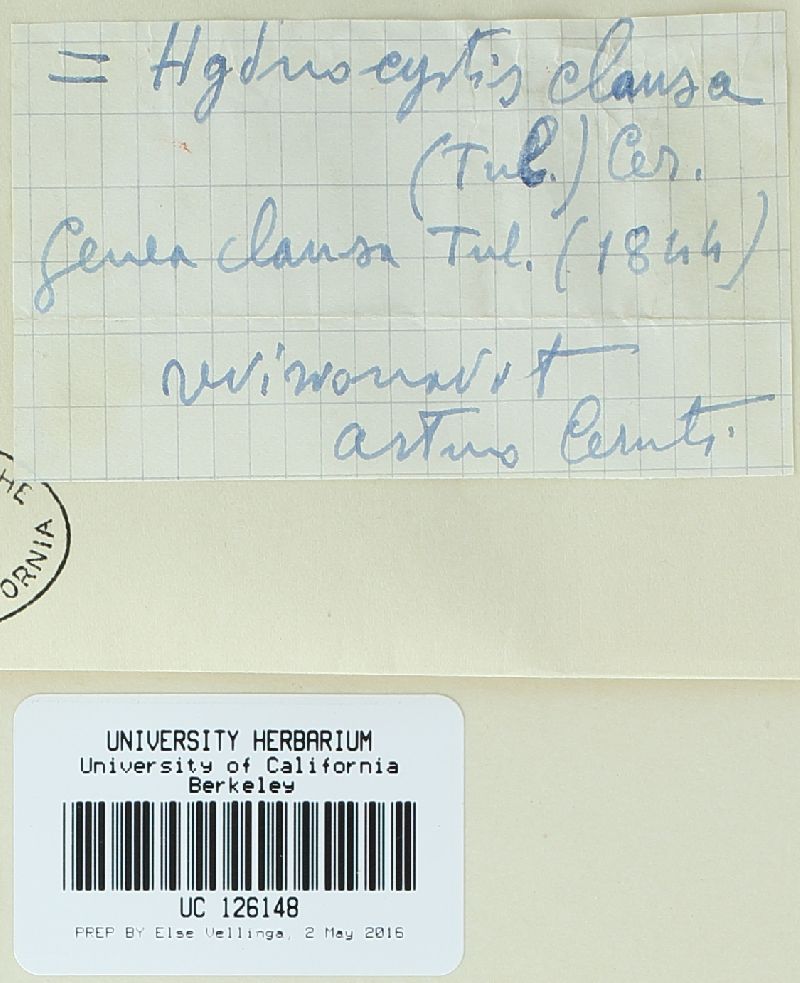 = Hydnocystis clausa
(Tul.) Cer.
Genea clausa Tul. (1844)
revisionavit
Arturo Ceruti.
HE
ORNIA
UNIVERSITY HERBARIUM
University of California
Berkeley
UC 126148
PREP BY Else Vellinga, 2 May 2016